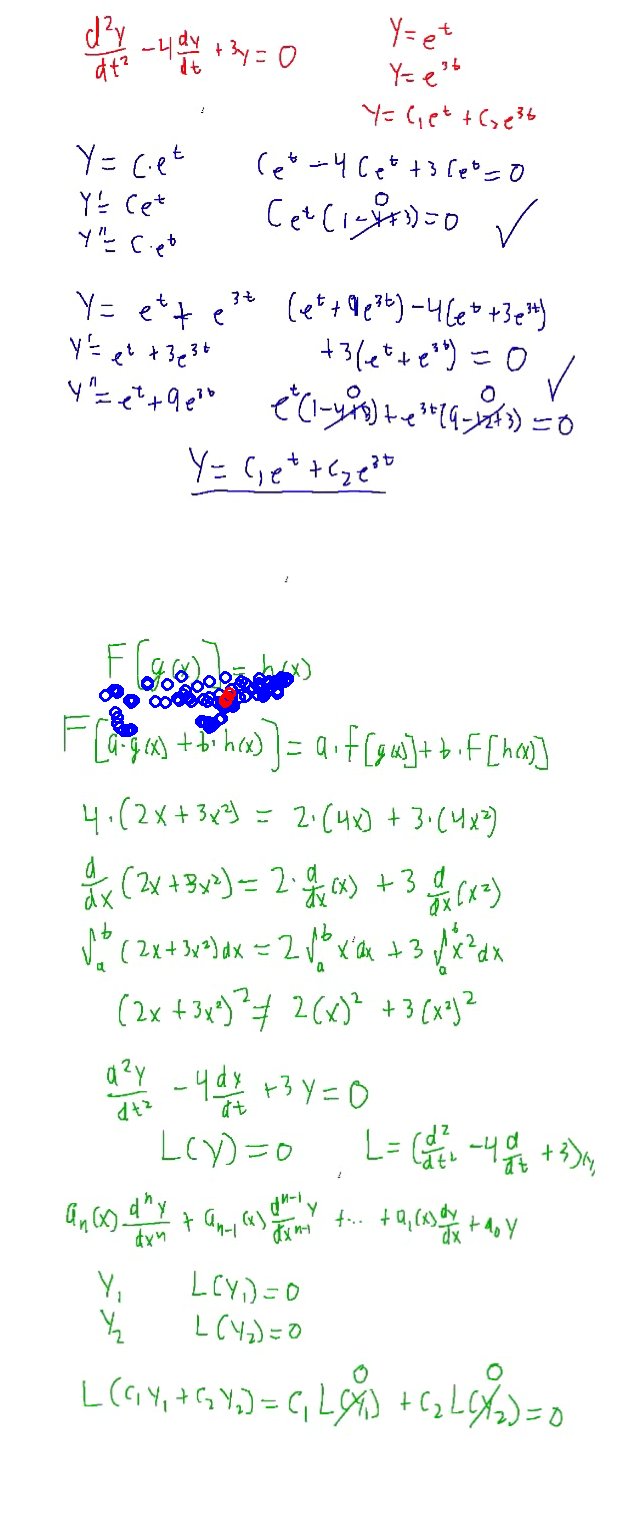 d²y/dt² - 4 dy/dt + 3y = 0
y = e^t
y = e^{3t}
y = C₁e^t + C₂e^{3t}
y = C·e^t
Ce^t - 4Ce^t + 3Ce^t = 0
y' = Ce^t
Ce^t(1-4+3) = 0 ✓
0
y'' = C·e^t
y = e^t + e^{3t}
(e^t + 9e^{3t}) - 4(e^t + 3e^{3t})
y' = e^t + 3e^{3t}
+3(e^t + e^{3t}) = 0 ✓
y'' = e^t + 9e^{3t}
0 0
e^t(1-4+3) + e^{3t}(9-12+3) = 0
y = C₁e^t + C₂e^{3t}
F[g(x)] = h(x)
F[a·g(x) + b·h(x)] = a·F[g(x)] + b·F[h(x)]
4·(2x + 3x²) = 2·(4x) + 3·(4x²)
d/dx (2x + 3x²) = 2·d/dx(x) + 3 d/dx(x²)
∫_a^b (2x+3x²)dx = 2∫_a^b x dx + 3∫_a^b x² dx
(2x + 3x²)² ≠ 2(x)² + 3(x²)²
d²y/dt² - 4 dy/dt + 3y = 0
L(y) = 0
L = (d²/dt² - 4 d/dt + 3)y
aₙ(x) dⁿy/dxⁿ + aₙ₋₁(x) dⁿ⁻¹y/dxⁿ⁻¹ + ... + a₁(x) dy/dx + a₀y
y₁ L(y₁) = 0
y₂ L(y₂) = 0
0 0
L(c₁y₁ + c₂y₂) = c₁L(y₁) + c₂L(y₂) = 0